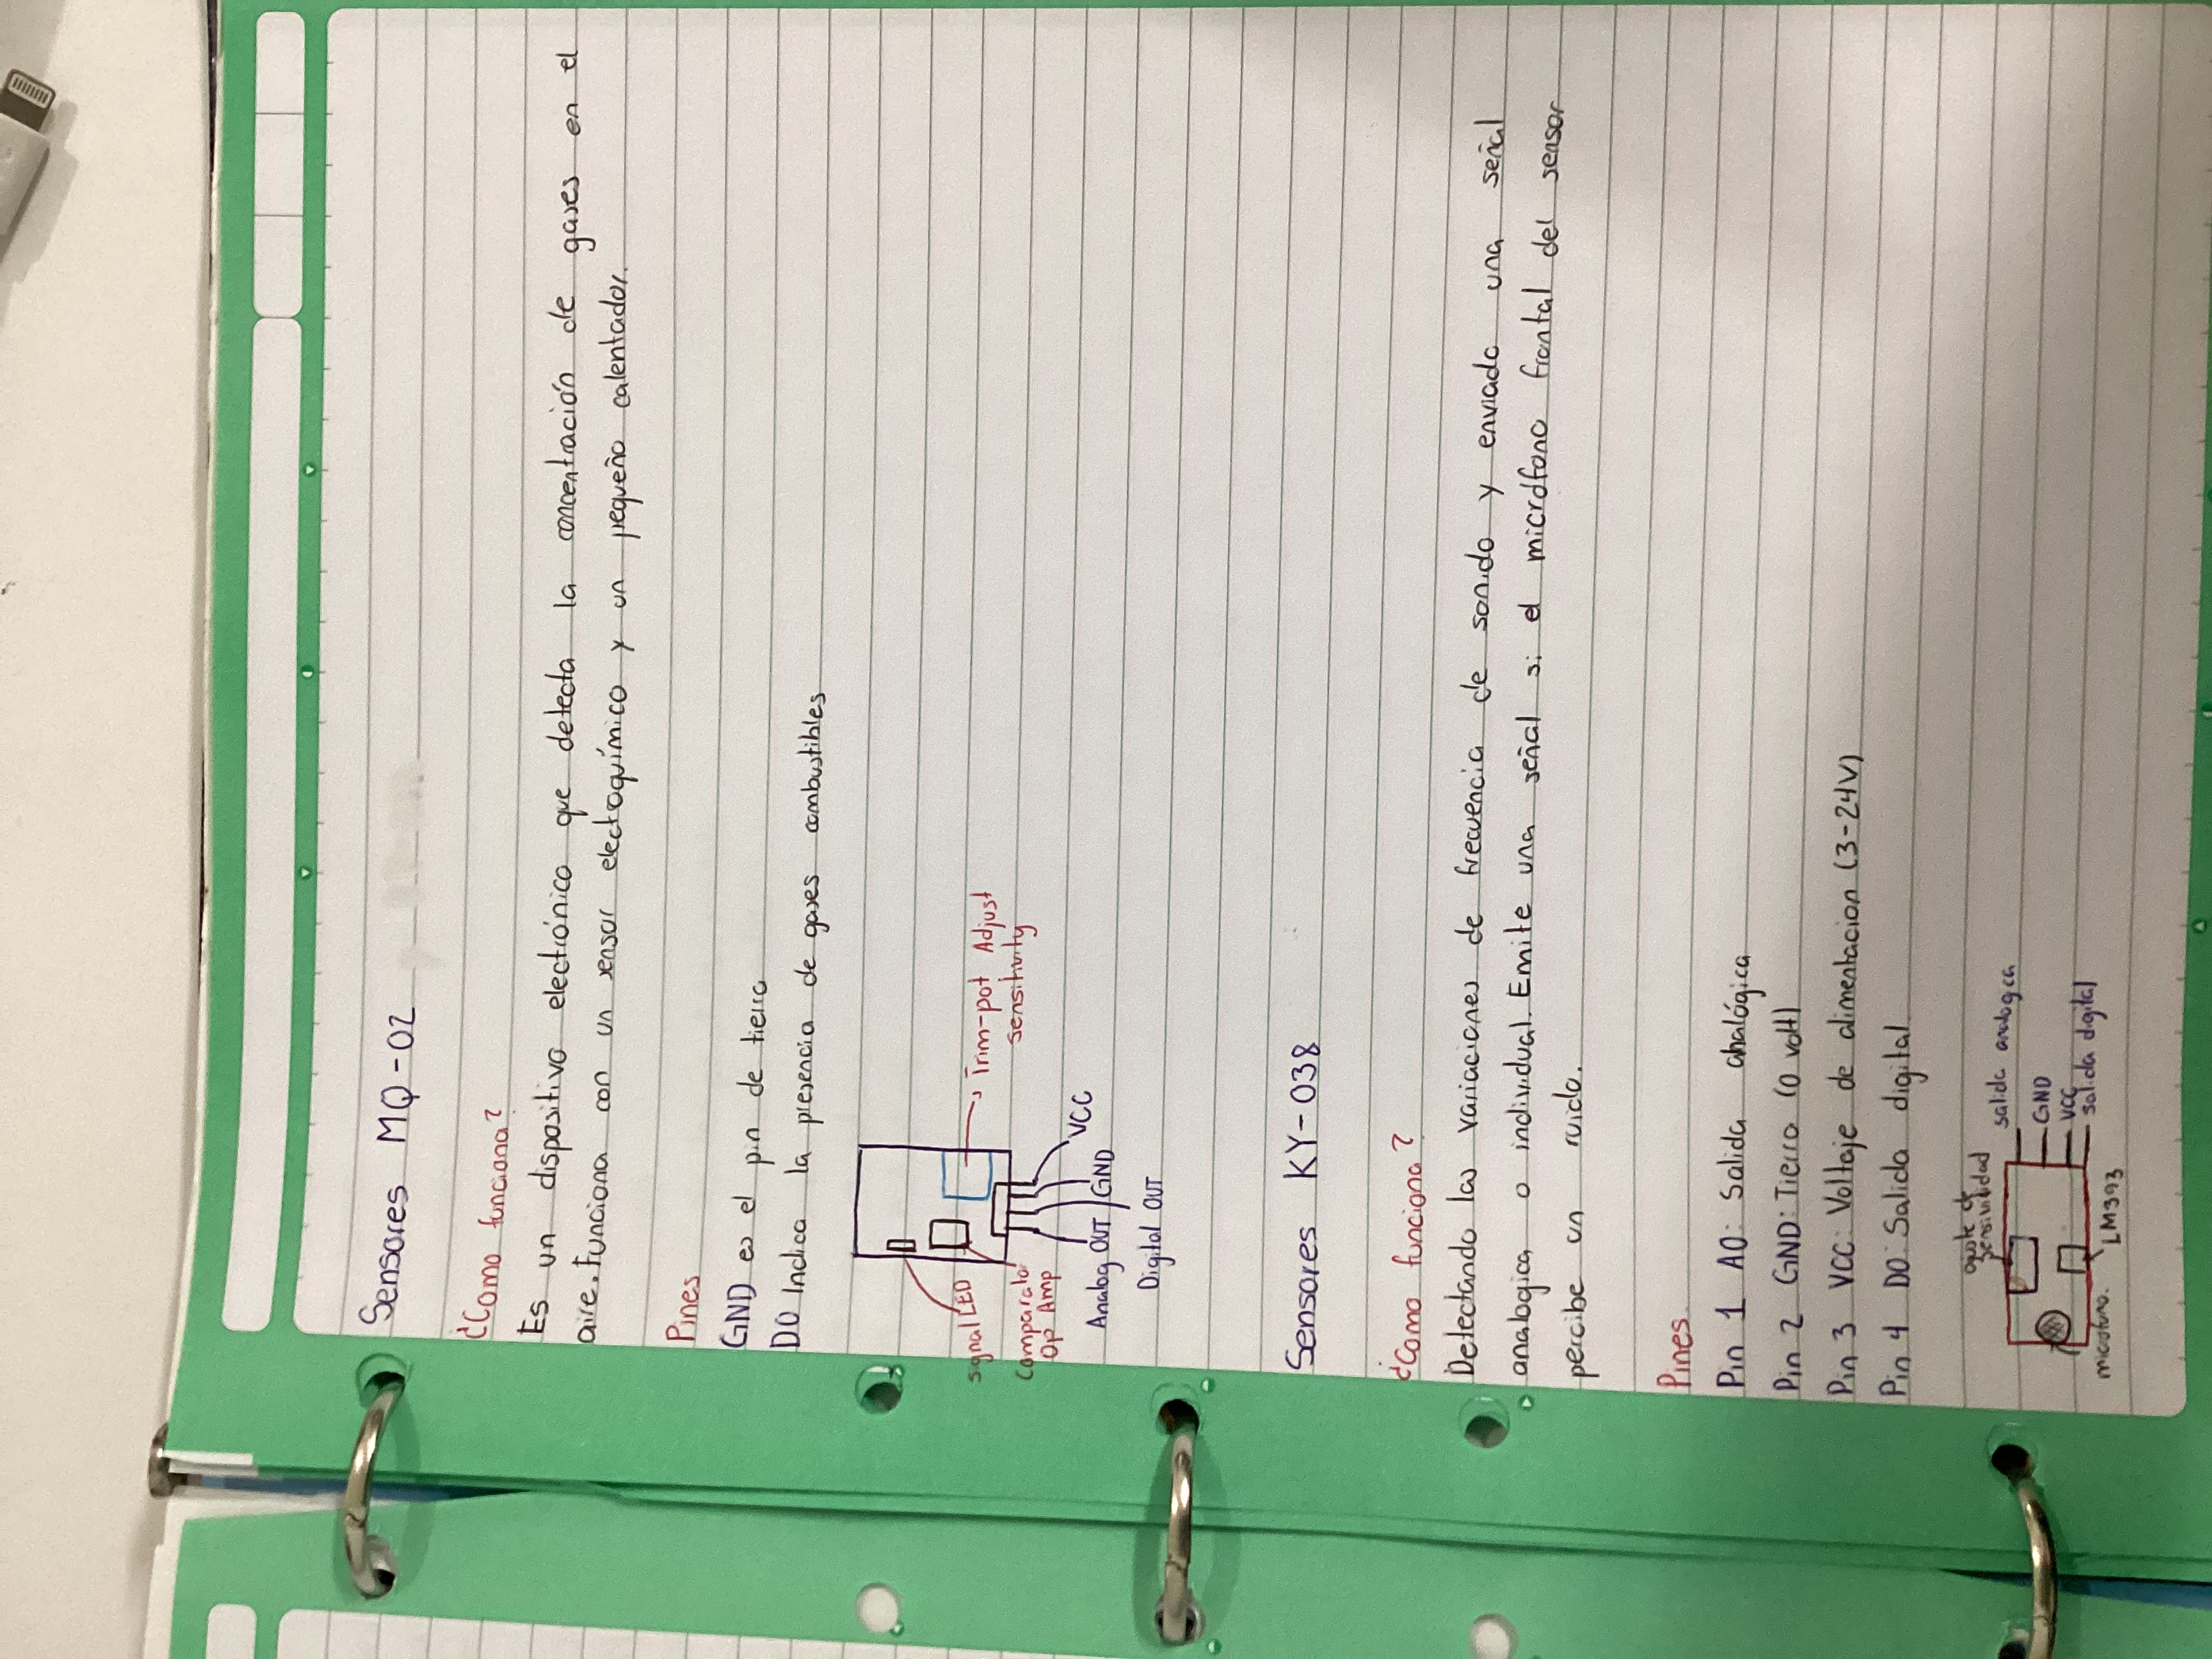 Sensores MQ-02
¿Como funciona?
Es un dispositivo electrónico que detecta la concentración de gases en el
aire. Funciona con un sensor electroquímico y un pequeño calentador.
Pines
GND es el pin de tierra
DO Indica la presencia de gases combustibles
Signal LED
Trim-pot Adjust
sensitivity
Op Amp
VCC
GND
Analog OUT
Digital OUT
Sensores KY-038
¿Como funciona?
Detectando las variaciones de frecuencia de sonido y enviado una señal
analogica o individual. Emite una señal si el micrófono frontal del sensor
percibe un ruido.
Pines
Pin 1 AO: Salida analógica
Pin 2 GND: Tierra (0 volt)
Pin 3 VCC: Voltaje de alimentacion (3-24V)
Pin 4 DO: Salida digital
ajuste de
sensibilidad
salida analogica
GND
VCC
salida digital
LM393